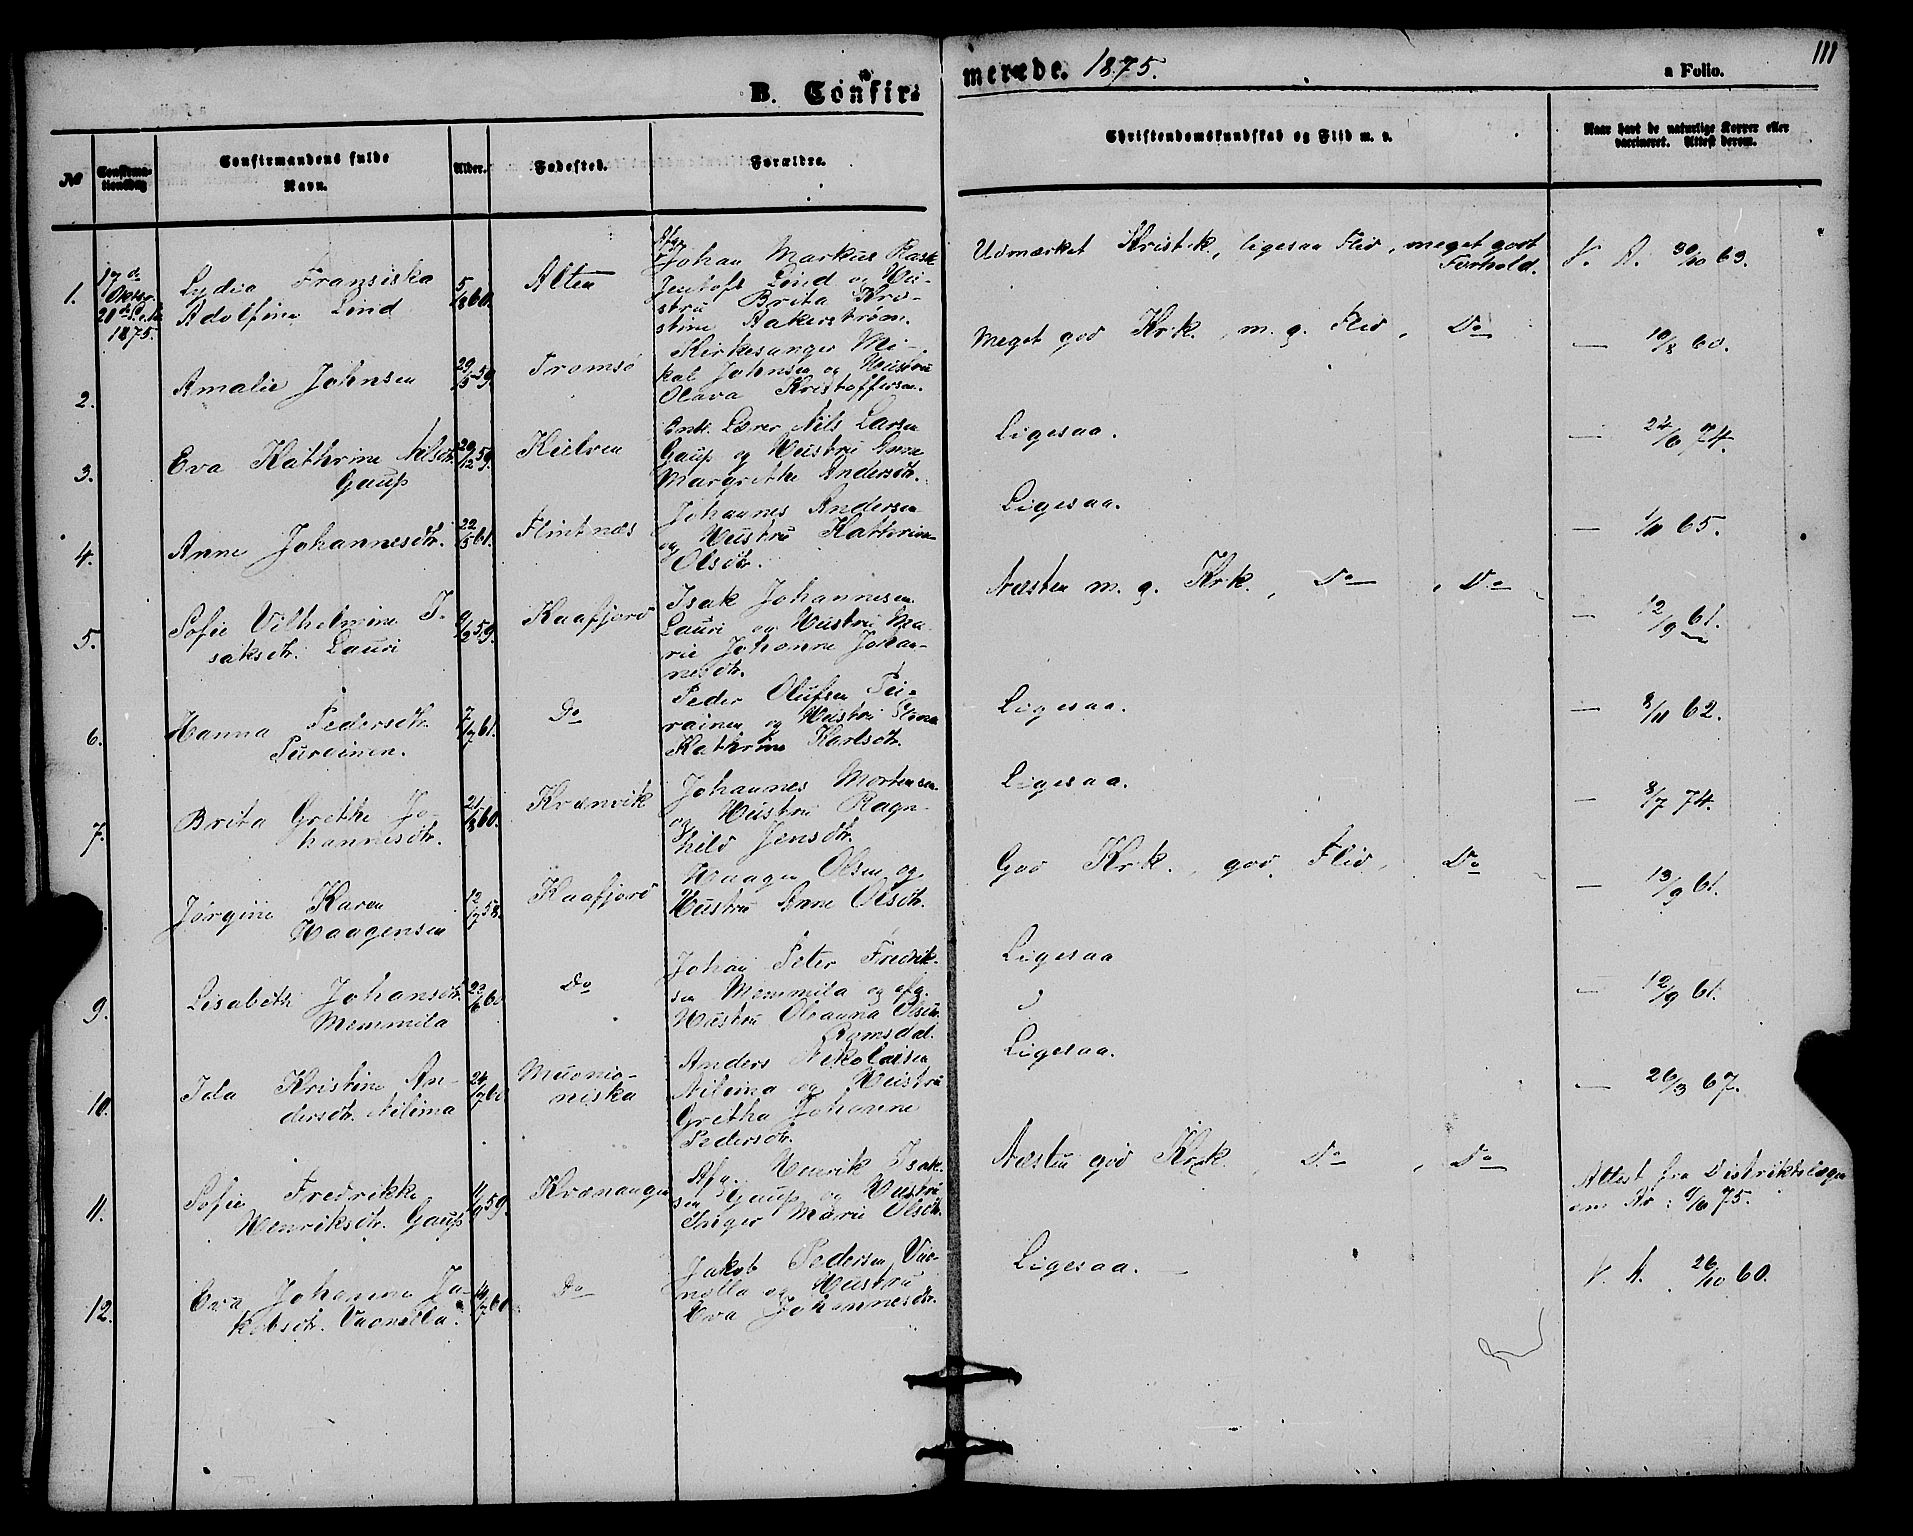 111
B. Confirmerede. 1875.
a Folio.
No
Confirmationsdag
Confirmandens fulde Navn.
Alder.
Fødested.
Forældre.
Christendomskundskab og Flid m. v.
Naar havt de naturlige Kopper eller vaccineret. Attest derom.
1.
1875.
Lydia Fransiska
Adolfine Lind
5/8 60.
Alten
Afg.
Johan Markus Rask
Jentoft Lind og Hu-
stru Brita Kri-
stine Aakerstrøm.
Udmærket Kristk., ligesaa Flid, meget godt
Forhold.
V. A. 30/10 63.
2.
Amalie Johnsen
29/5 59.
Tromsø
Kirkesanger Mi-
kal Johnsen og Hustru
Olava Kristoffersen.
Meget god Krk., m. g. Flid, Do
— 10/8 60.
3.
Eva Kathrine Nilsdtr.
Gaup
29/12 59.
Lærer Nils Larsen
Gaup og Hustru Anne
Margrethe Andersdtr.
Ligesaa.
— 24/6 74.
4.
Anne Johannesdtr.
22/5 61.
Flintnæs
Johannes Andersen
og Hustru Kathrine
Olsdtr.
Ligesaa.
— 1/11 65.
5.
Sofie Vilhelmine I-
saksdtr. Lauri
Kaafjord
Isak Johannesen
Lauri og Hustru Ma-
rie Johanne Johan-
nesdtr.
Næsten m. g. Krk., Do, Do
— 12/9 61.
6.
Hanna Pedersdtr.
7/7 61.
Do
Peder Olufsen Pei-
rainen og Hustru Stina
Kathrine Karlsdtr.
Ligesaa.
— 8/11 62.
7.
Brita Grethe Jo-
hannesdtr.
21/8 60.
Krænvik
Johannes Mortensen
og Hustru Ragn-
hild Jensdtr.
Ligesaa.
— 8/7 74.
Jørgine Karen
Haagensen
12/7 58.
Kaafjord
Haagen Olsen og
Hustru Anne Olsdtr.
God Krk., god Flid, Do
— 13/9 61.
9.
Lisabeth Johansdtr.
Memmila
Do
Johan Peter Fredrik-
sen Memmila og afg.
Hustru Oleanna Olsdtr.
Romsdal.
Ligesaa
— 12/9 61.
10.
Ida Kristine An-
dersdtr. Nilima
24/7 60
Muonio-
niska
Anders Nikolaisen
Nilima og Hustru
Gretha Johanne
Pedersdtr.
Ligesaa.
— 26/3 67.
11.
Sofie Fredrikke
Henriksdtr. Gaup
11/9 59.
Kvænangen
Afg. Henrik Isak-
sen Gaup og Hustru
Inger Marie Olsdtr.
Næsten god Krk., Do, Do
Attest fra Distriktslægen
75.
12.
Eva Johanne Ja-
kobsdtr. Vuonella.
Do
Jakob Pedersen Vuo-
nella og Hustru
Eva Johannesdtr.
Ligesaa.
V. A. 26/10 60.